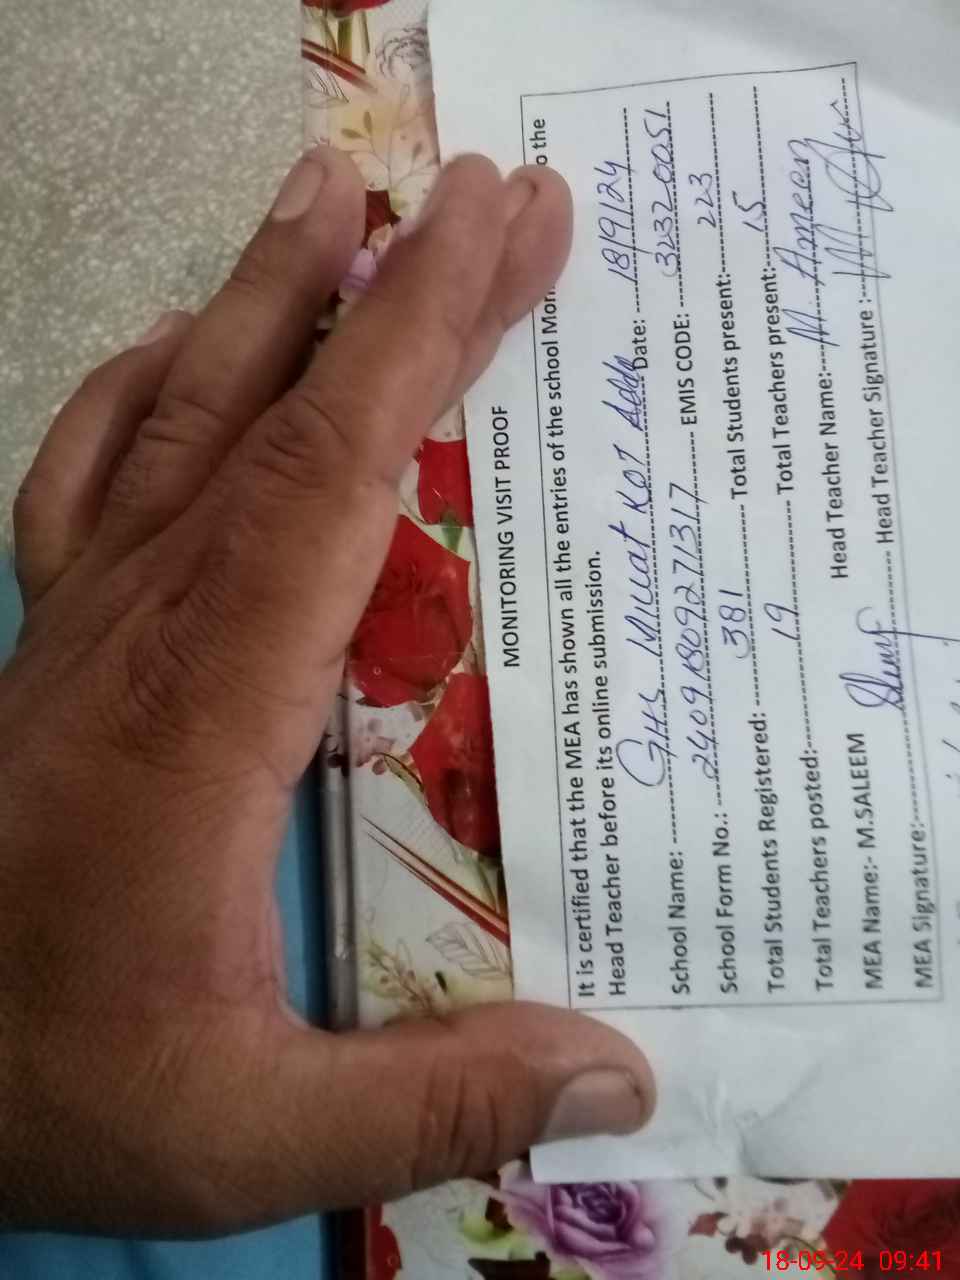 MONITORING VISIT PROOF
It is certified that the MEA has shown all the entries of the school Mon o the
Head Teacher before its online submission.
School Name: GHS Kot Addu Date: 18/9/24
School Form No.: 24091809271317 EMIS CODE: 32320051
Total Students Registered: 381 Total Students present: 223
Total Teachers posted: 19 Total Teachers present: 15
MEA Name:- M.SALEEM Head Teacher Name: M. Ameen
MEA Signature: Head Teacher Signature :
18-09-24 09:41